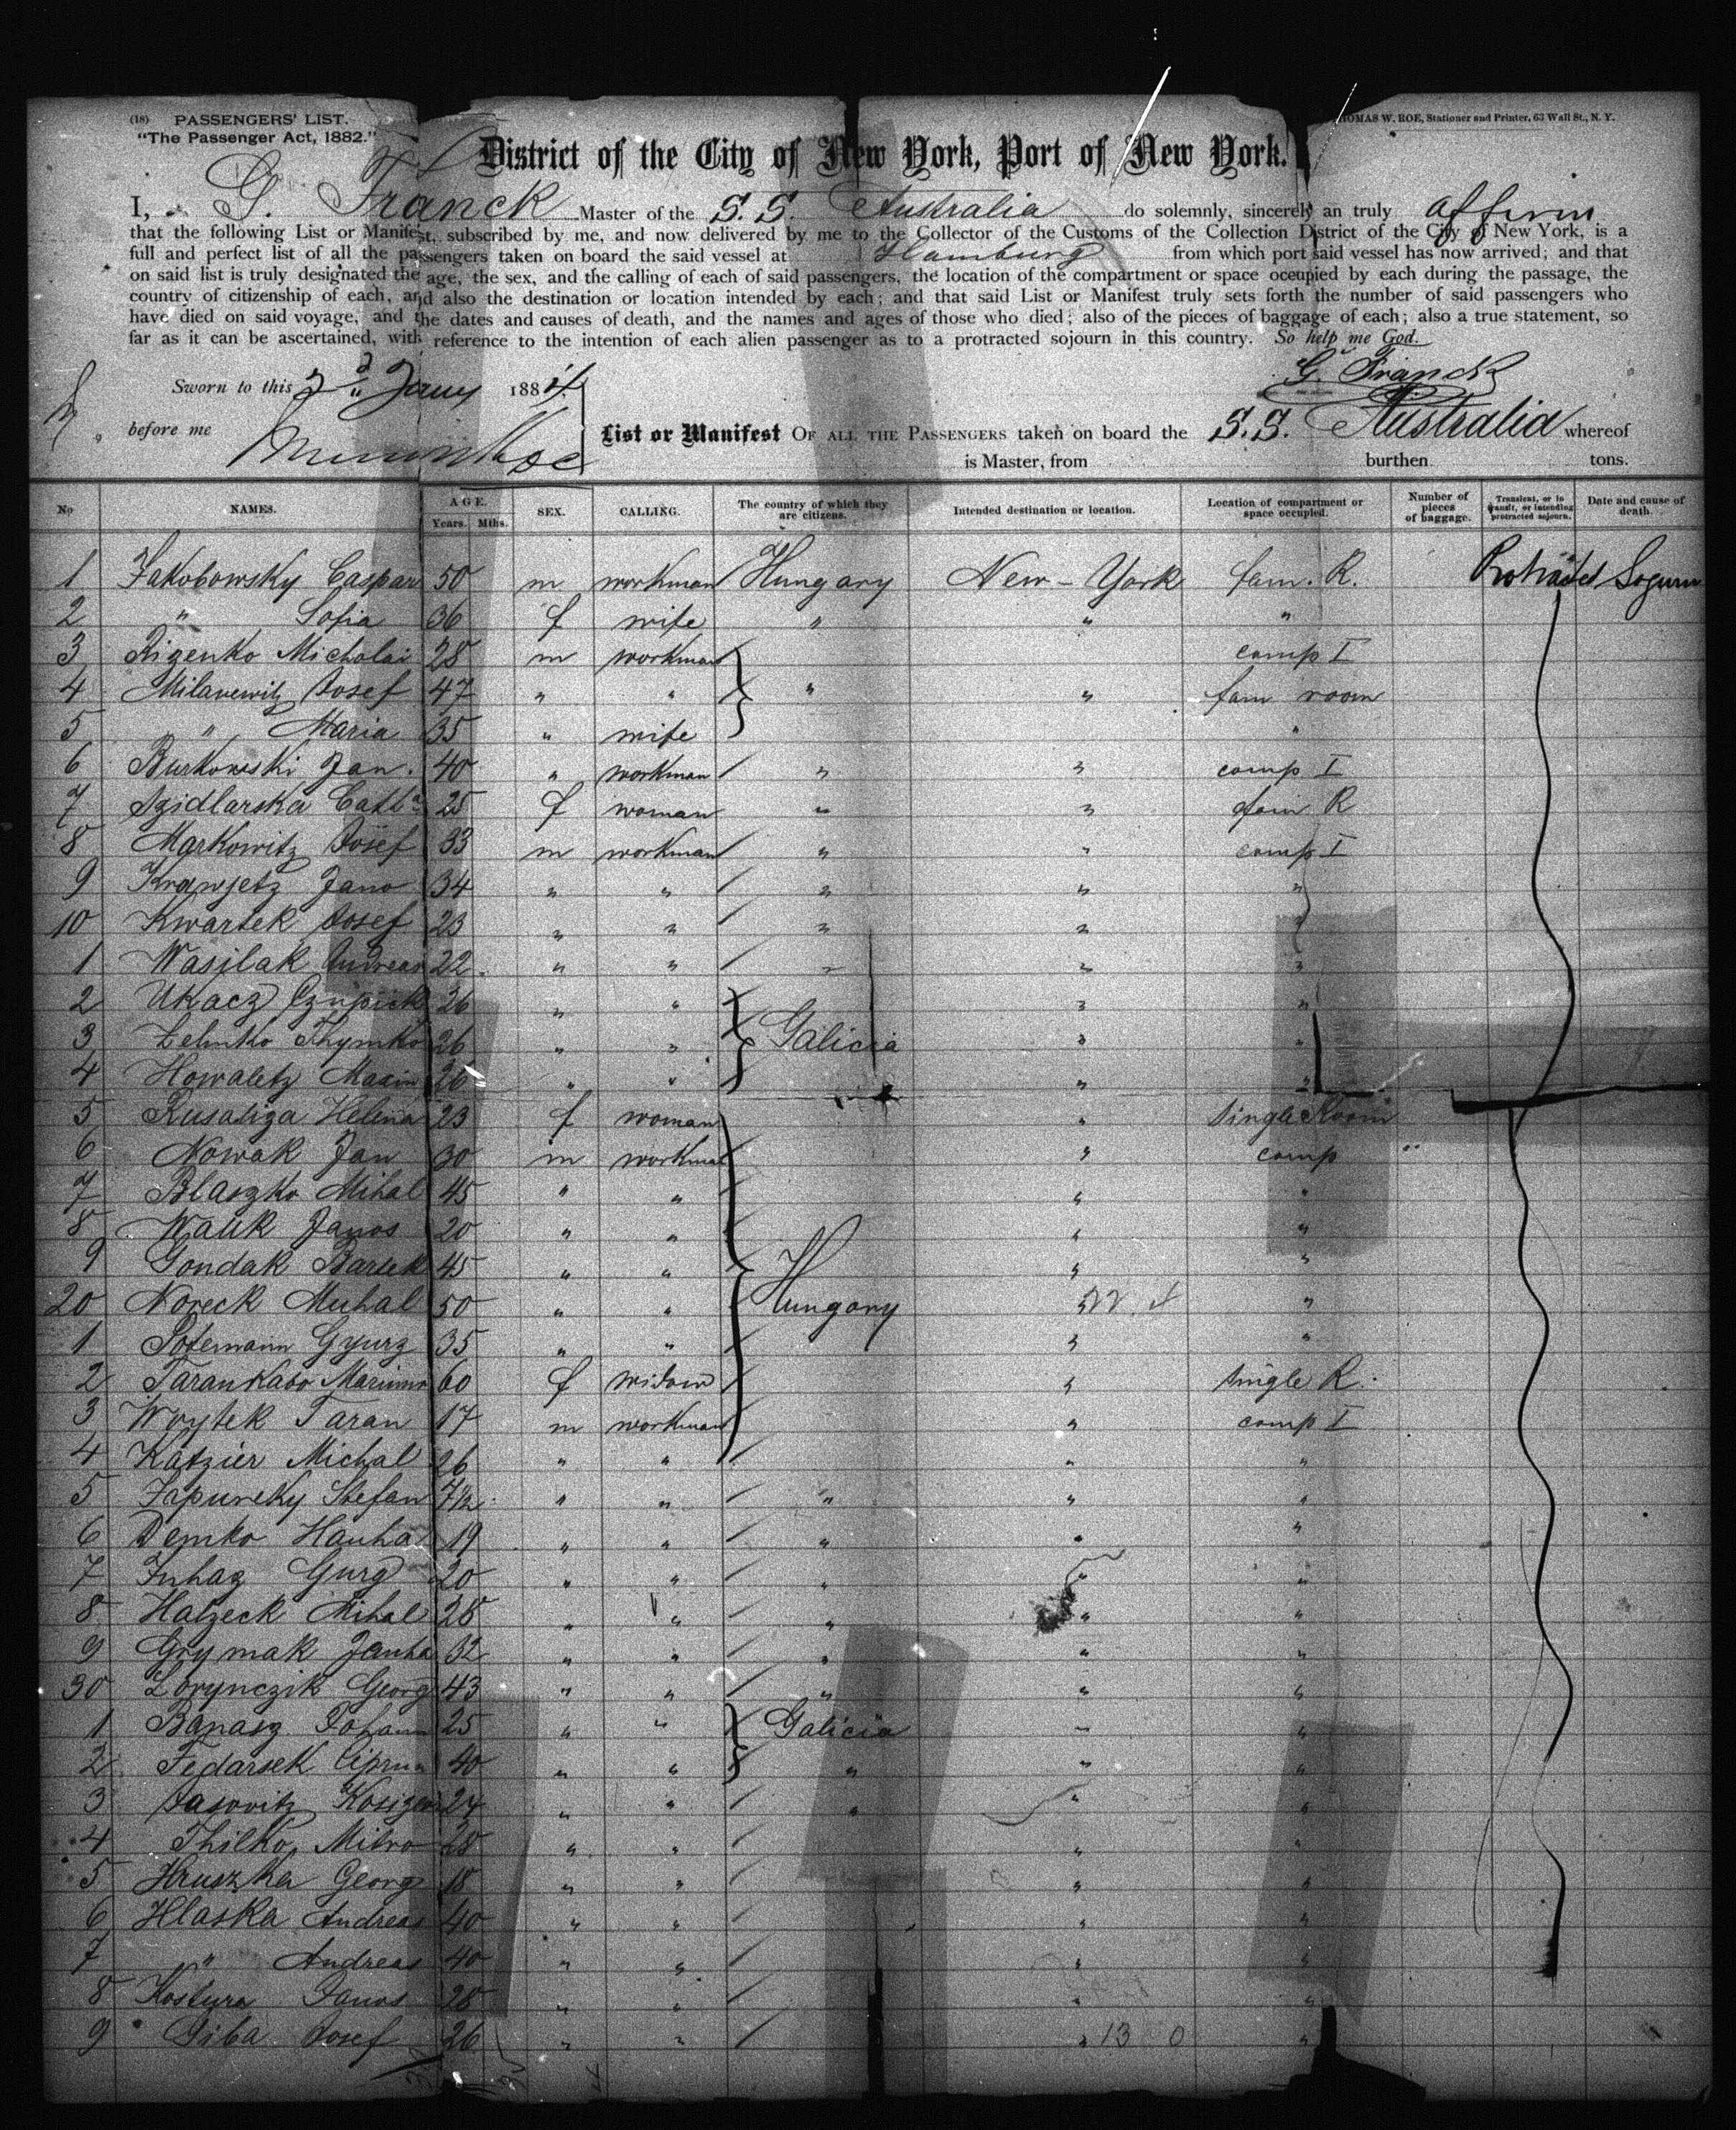 (18) PASSENGERS' LIST.
"The Passenger Act, 1882."
THOMAS W. ROE, Stationer and Printer, 63 Wall St., N. Y.
District of the City of New York, Port of New York.
I, G. Franck Master of the S. S. Australia do solemnly, sincerely an truly affirm
that the following List or Manifest, subscribed by me, and now delivered by me to the Collector of the Customs of the Collection District of the City of New York, is a
full and perfect list of all the passengers taken on board the said vessel at Hamburg from which port said vessel has now arrived; and that
on said list is truly designated the age, the sex, and the calling of each of said passengers, the location of the compartment or space occupied by each during the passage, the
country of citizenship of each, and also the destination or location intended by each; and that said List or Manifest truly sets forth the number of said passengers who
have died on said voyage, and the dates and causes of death, and the names and ages of those who died; also of the pieces of baggage of each; also a true statement, so
far as it can be ascertained, with reference to the intention of each alien passenger as to a protracted sojourn in this country. So help me God.
G. Franck
Sworn to this 2d 1884
before me
List or Manifest OF ALL THE PASSENGERS taken on board the S.S. Australia whereof
is Master, from burthen tons.
No NAMES. AGE. Years. Mths. SEX. CALLING. The country of which they are citizens. Intended destination or location. Location of compartment or space occupied. Number of pieces of baggage. Transient, or in transit, or intending protracted sojourn. Date and cause of death.
1 Jakobowsky Caspar 50 m workman Hungary New-York fam. R.
2 " Sofia 36 f wife " " "
3 Rizenko Micholai 28 m workman comp I
4 Milanewitz Josef 47 " " " " fam room
5 " Maria 35 " wife "
6 Burkowski Jan. 40 " workman " " comp I
7 Szidlarska Cath. 25 f woman " " fam R
8 Markowitz Josef 33 m workman " " comp I
9 Krawjetz Jano 34 " " " " "
10 Kwartek Josef 23 " " " " "
1 Wasilak Andreas 22 " " " " "
2 Ukacz 26 " " " "
3 Zelinko Thymko 26 " " Galicia " "
4 Howaletz Maxim 26 " " " "
5 Rusaliza Helena 23 f woman " single Room
6 Nowak Jan 30 m workman " comp "
7 Blaszko Mihal 45 " " " "
8 Walik Janos 20 " " " "
9 Gondak Bartek 45 " " " "
20 Noreck Muhal 50 " " Hungary " "
1 Sotemann Gyurz 35 " " " "
2 Tarankabo 60 f widow " single R.
3 Woytek Taran 17 m workman " comp I
4 Katzier Michal 26 " " " "
5 Stefan " " " " "
6 Demko Hanha 19 " " " " "
7 Juhaz Gurg 20 " " " " "
8 Halzeck Mihal 28 " " " " "
9 Grymak Janha 32 " " " " "
30 Lorynczik Georg 43 " " " " "
1 Banasz Johann 25 " " Galicia " "
2 Fedarsek 40 " " " " "
3 Jasovitz 24 " " " " "
4 Thilko Mitro 28 " " " "
5 Hruszka Georg 18 " " " "
6 Hlaska Andreas 40 " " " "
7 " Andreas 40 " " " "
8 Kostura Janos 28 " " " "
9 Giba Josef 26 " " " 13 0 "